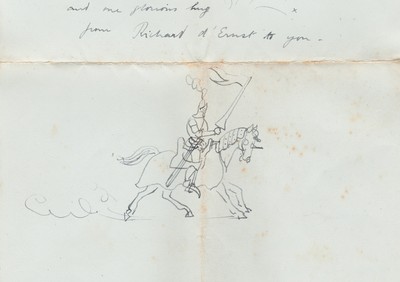 and one glorious hug x
from Richard d'Ernst to you.